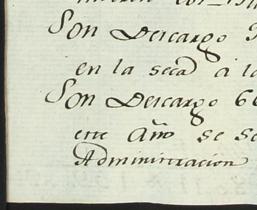 Son Descargo
en la secad a la
Son Descargo 60
este Año se se
Administracion